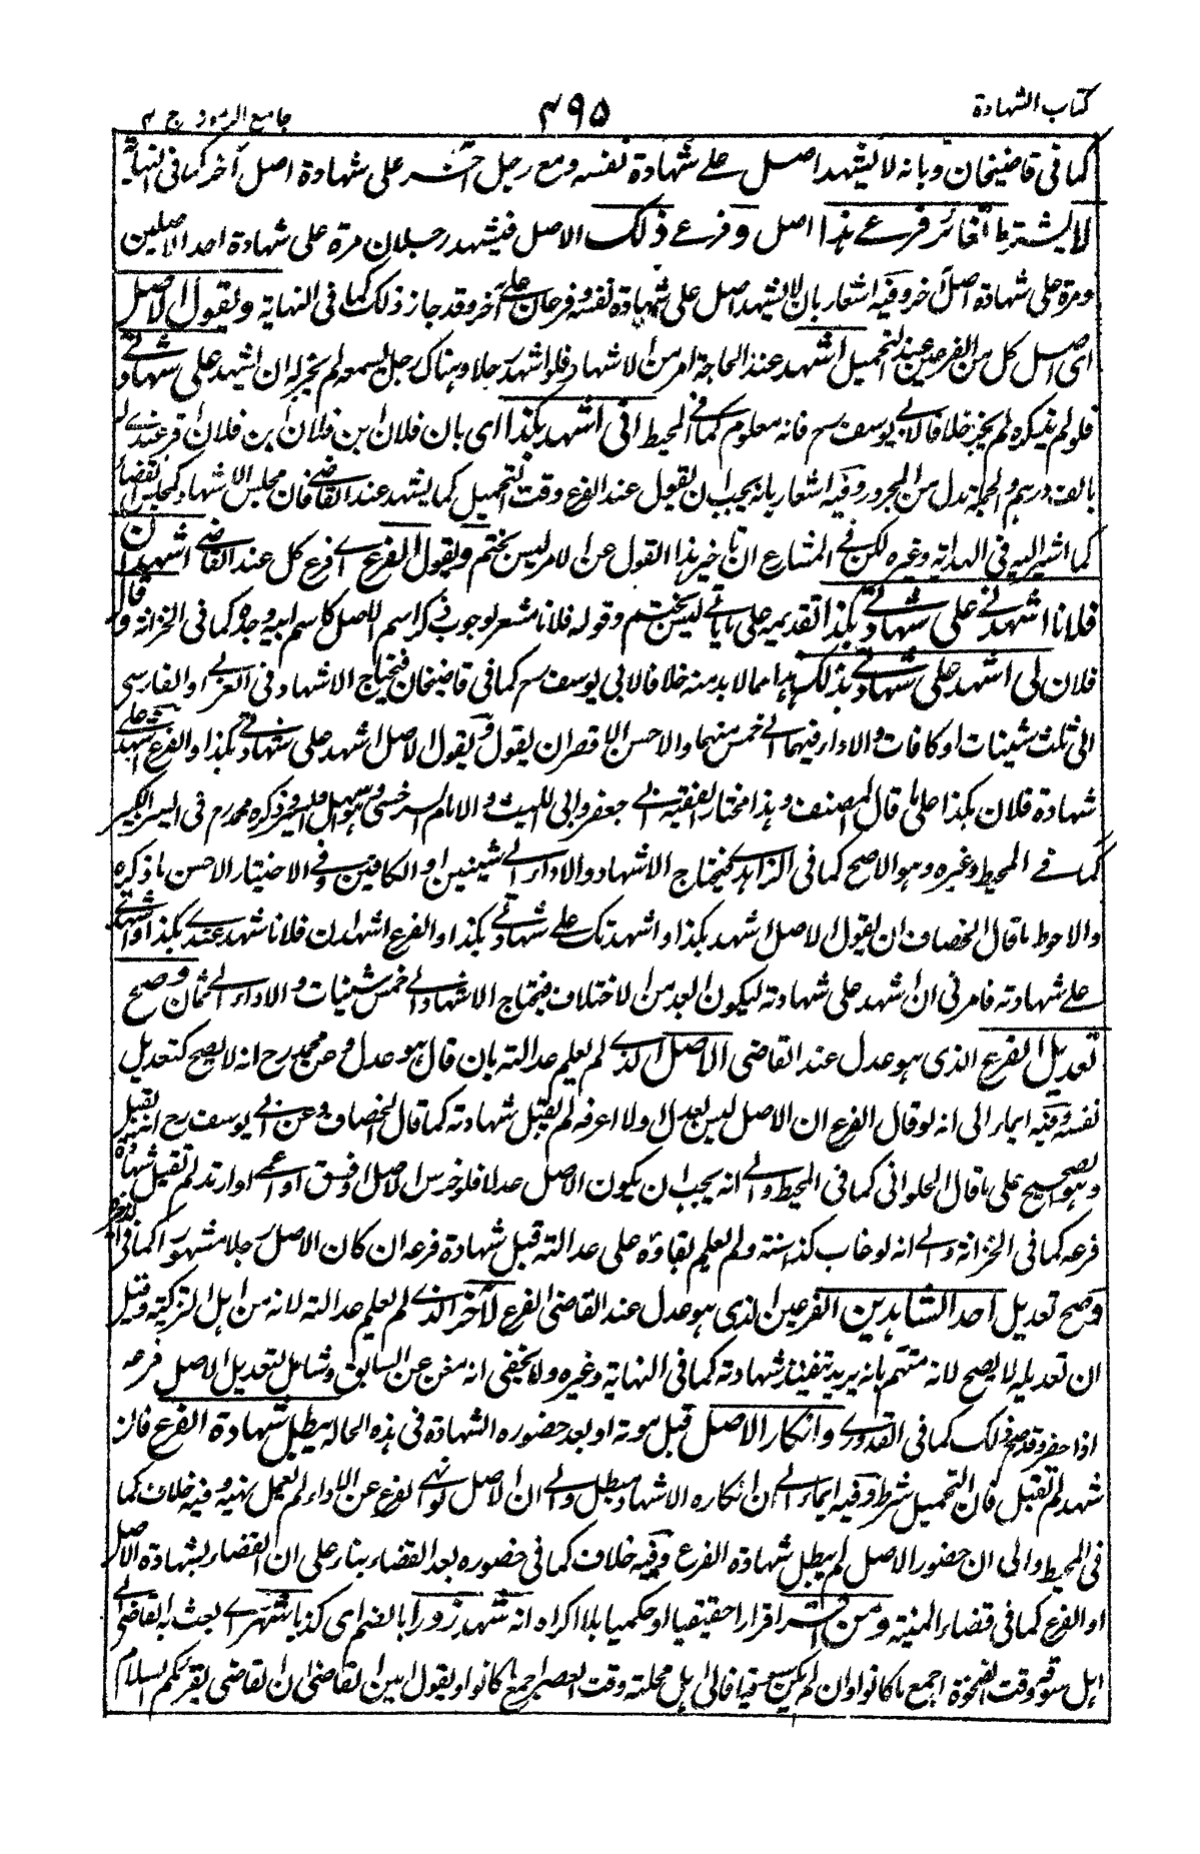 كتاب الشهادة
٤٩٥
جامع الرموز ج ٢
كما فى قاضيخان وبانه لا يشهد اصل على شهادة نفسه ومع رجل آخر على شهادة اصل آخر كما فى النهاية
لا يشترط تغائر فرعى هذا اصل و فرعى ذلك الاصل فيشهد رجلان مرة على شهادة احد الاصلين
ومرة على شهادة اصل آخر وفيه اشعار بان لا يشهد اصل على شهادة نفسه وفرعان على آخر وقد جاز ذلك كما فى النهاية ويقول الاصل
اى اصل كل من الفرعين عند التحميل اشهد عند الحاجة امر من الاشهاد فلو اشهد رجلا وهناك رجل يسمعه لم يجز له ان يشهد على شهادتى
فلو لم يذكره لم يجز خلافا لابى يوسف رح فانه معلوم كما فى المحيط انى اشهد بكذا اى بان فلان ابن فلان بن فلان اقر عندى
بالف درهم والجملة بدل من المجرور وفيه اشعار بانه يجب ان يقول عند الفرع وقت التحميل كما يشهد عند القاضى فان مجلس الاشهاد كمجلس القضاء
كما اشير اليه فى الهداية وغيره لكن فى المشارع ان تاخير هذا القول عن الامر ليس بختم ويقول الفرع اى فرع كل عند القاضى اشهد ان
فلانا اشهدنى على شهادتى بكذا تقديمه على ما ياتى ليس بختم وقوله فلانا مشعر لوجوب ذكر اسم الاصل كاسم ابيه وجده كما فى الخزانة وقال
فلان لى اشهد على شهادتى بذلك هذا مما لا بد منه خلافا لابى يوسف رح كما فى قاضيخان فيحتاج الاشهاد فى العربى او الفارسى
الى ثلث شينات او كافات والاداء فيهما الى خمس منهما والاحسن الاقصر ان يقول ويقول الاصل اشهد على شهادتى بكذا والفرع اشهد على
شهادة فلان بكذا على ما قال المصنف وهذا مختار الفقيه ابى جعفر وابى الليث والامام السرخسى وهو اسهل وايسر وذكره محمد رح فى السير الكبير
كما فى المحيط وغيره وهو الاصح كما فى الزاهدى فيحتاج الاشهاد والاداء الى شينين او الكافين وفى الاختيار الاحسن ما ذكره
والاحوط ما قال الخصاف ان يقول الاصل اشهد بكذا واشهدتك على شهادتى بكذا والفرع اشهد ان فلانا شهد عندى بكذا واشهدنى
على شهادته فامرنى ان اشهد على شهادته ليكون ابعد من الاختلاف فيحتاج الاشهاد الى خمس شينات والاداء الى ثمان وصح
تعديل الفرع الذى هو عدل عند القاضى الاصل الذى لم يعلم عدالته بان قال هو عدل وعن محمد رح انه لا يصح كتعديل
نفسه وفيه ايماء الى انه لو قال الفرع ان الاصل ليس بعدل او لا اعرفه لم تقبل شهادته كما قال الخصاف وعن ابى يوسف رح انه تقبل
وهو الصحيح على ما قال الحلوانى كما فى المحيط والى انه يجب ان يكون الاصل عدلا فلو خرس الاصل او فسق او عمى او ارتد لم تقبل شهادة
فرعه كما فى الخزانة والى انه لو غاب كذا سنة ولم يعلم بقاؤه على عدالته قبل شهادة فرعه ان كان الاصل رجلا مشهورا كما فى
وصح تعديل احد الشاهدين الفرعين الذى هو عدل عند القاضى الفرع الآخر الذى لم يعلم عدالته لانه من اهل التزكية وقيل
ان تعديله لا يصح لانه متهم بانه يريد تنفيذ شهادته كما فى النهاية وغيره ولا يخفى انه مغن عن السابق وشامل لتعديل الاصل فرعه
اذا حضر وقد صح ذلك كما فى القدورى وانكار الاصل قبل موته او بعد حضوره الشهادة فى هذه الحالة يبطل شهادة الفرع فان
شهد لم تقبل فان التحميل شرط وفيه ايماء الى ان انكاره الاشهاد مبطل والى ان الاصل لو نهى الفرع عن الاداء لم يعمل نهيه وفيه خلاف كما
فى المحيط والى ان حضور الاصل لم يبطل شهادة الفرع وفيه خلاف كما فى حضوره بعد القضاء بناء على ان القضاء بشهادة الاصل
او الفرع كما فى قضاء المنية ومن اقر اقرارا حقيقيا او حكميا بلا اكراه انه شهد زورا بالضم اى كذبا شهر اى بعث به القاضى الى
اهل سوقه وقت الضحوة اجمع ما كانوا وان لم يكن سوقيا فالى اهل محلته وقت العصر اجمع ما كانوا ويقول امين القاضى ان القاضى يقرئكم السلام